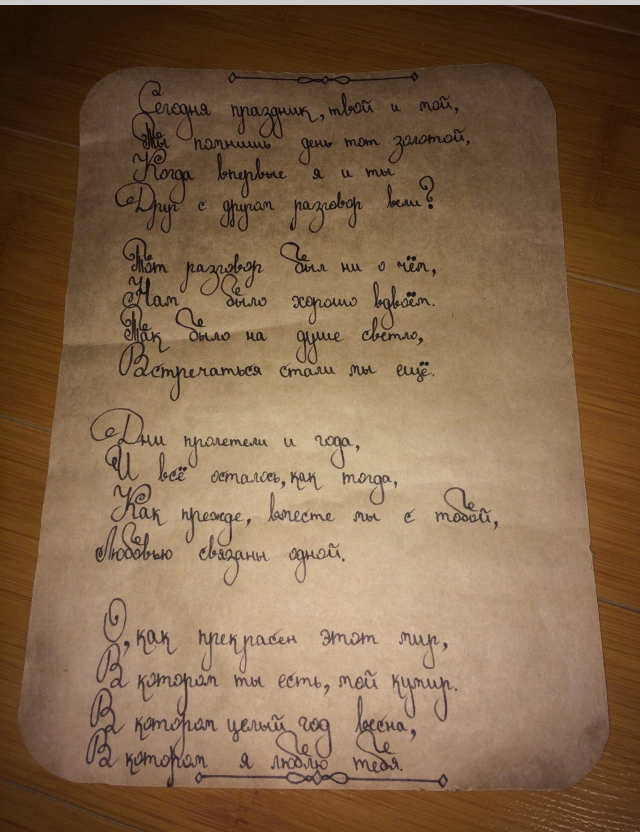 Сегодня праздник, твой и мой,
Ты помнишь день тот золотой,
Когда впервые я и ты
Друг с другом разговор вели?
Тот разговор был ни о чём,
Нам было хорошо вдвоём.
Так было на душе светло,
Встречаться стали мы ещё.
Дни пролетели и года,
И всё осталось, как тогда,
Как прежде, вместе мы с тобой,
Любовью связаны одной.
О, как прекрасен этот мир,
В котором ты есть, мой кумир.
В котором целый год весна,
В котором я люблю тебя.